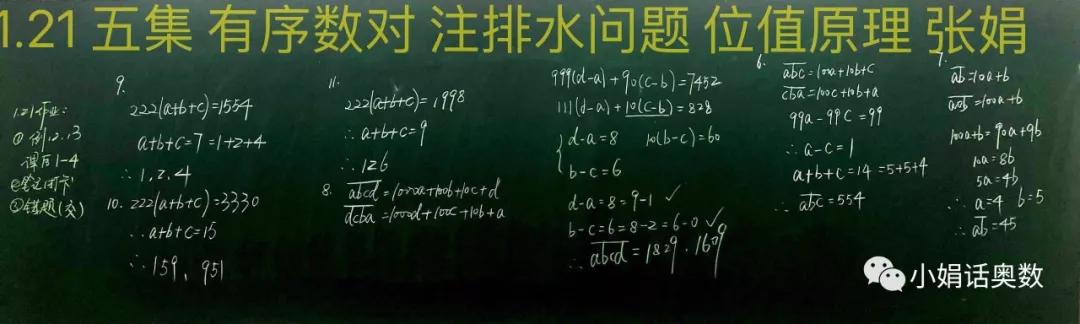 1.21 五集 有序数对 注排水问题 位值原理 张娟
1.21作业:
① 例12.13
课后1-4
③错题(交)
9.
222(a+b+c)=1554
a+b+c=7=1+2+4
∴1,2,4
10. 222(a+b+c)=3330
∴a+b+c=15
∴159、951
11.
222(a+b+c)=1998
∴a+b+c=9
∴126
8. abcd=1000a+100b+10c+d
dcba=1000d+100c+10b+a
999(d-a)+90(c-b)=7452
111(d-a)+10(c-b)=828
d-a=8 10(b-c)=60
b-c=6
d-a=8=9-1 ✓
b-c=6=8-2=6-0 ✓
∴abcd=1829、1609
6.
abc=100a+10b+c
cba=100c+10b+a
99a-99c=99
∴a-c=1
a+b+c=14=5+5+4
∴abc=554
7.
ab=10a+b
a0b=100a+b
100a+b=90a+9b
10a=8b
5a=4b
∴a=4 b=5
∴ab=45
小娟话奥数